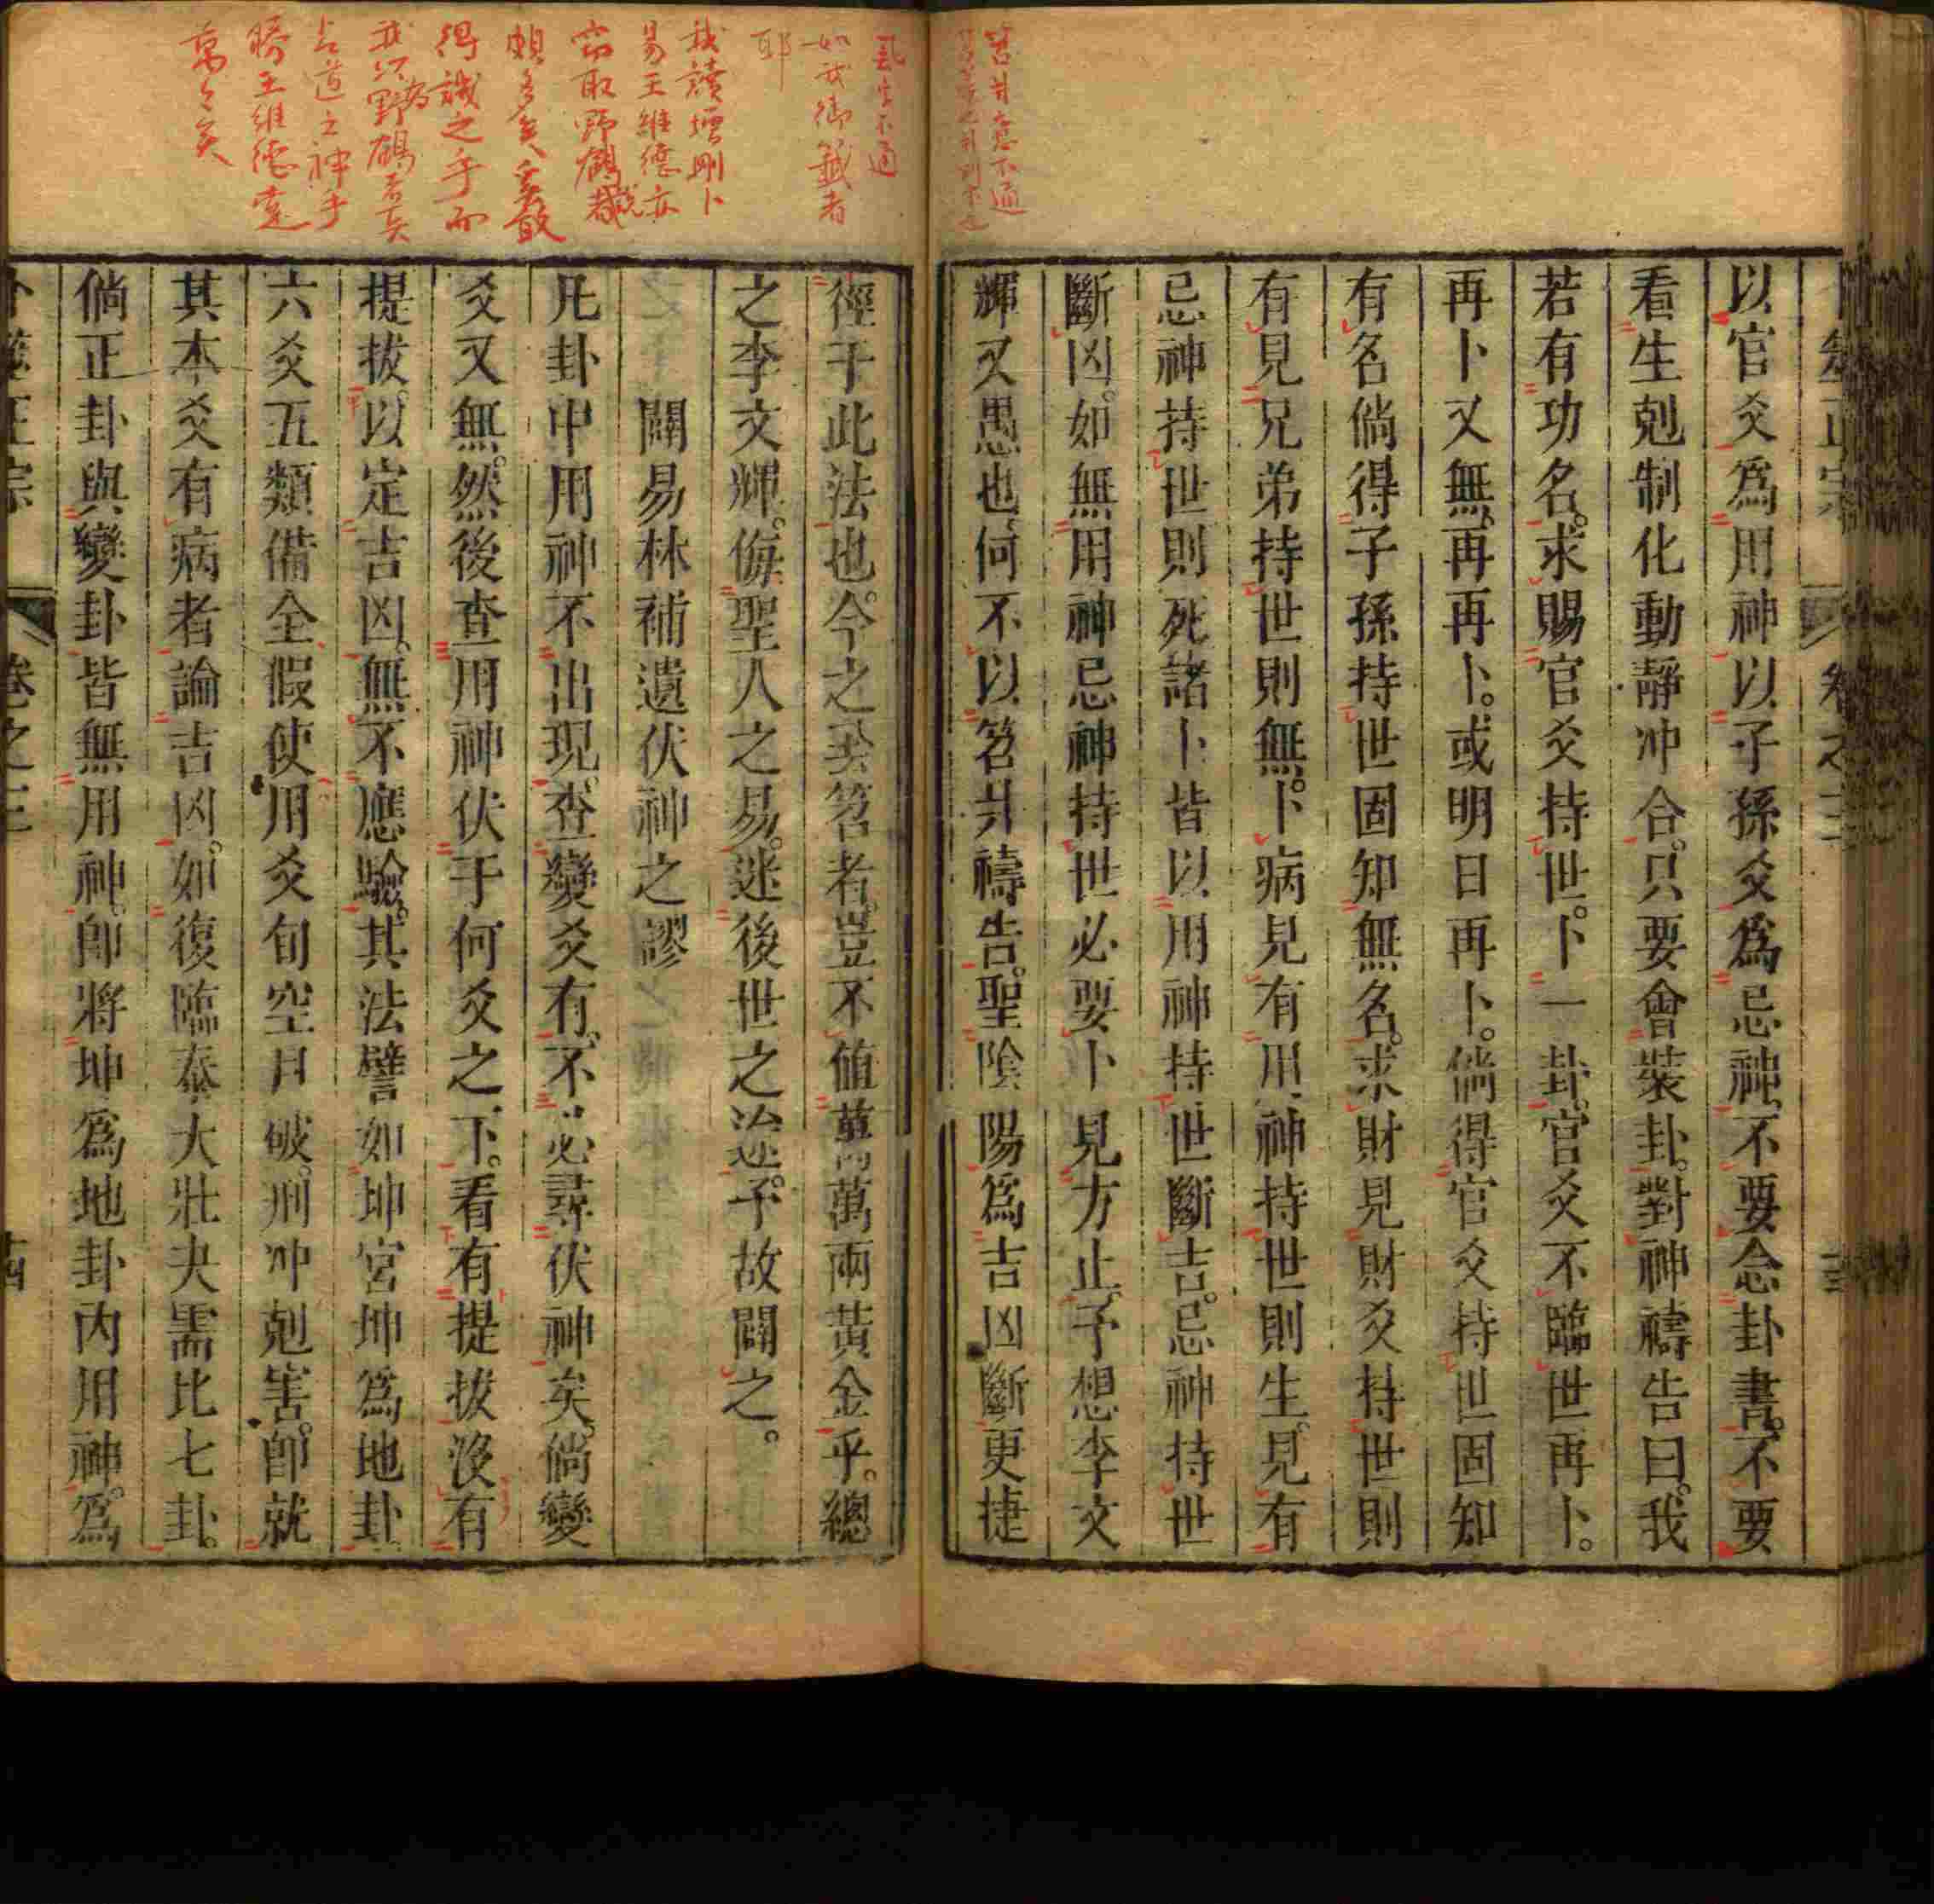 卜筮正宗 卷之三 十三
以官爻爲用神以子孫爻爲忌神不要念卦書。不要
看生剋制化動靜冲合。只要會裝卦。對神禱告曰。我
若有功名。求賜官爻持世。卜一卦。官爻不臨世再卜。
再卜又無。再再卜。或明日再卜。倘得官爻持世固知
有名倘得子孫持世固知無名。求財見財爻持世則
有見兄弟持世則無。卜病見有用神持世則生。見有
忌神持世則死諸卜皆以用神持世斷吉。忌神持世
斷凶。如無用神忌神持世必要卜見方止。予想李文
輝又愚也何不以筊幷禱告。聖陰陽爲吉凶斷更捷
徑于此法也。今之卖筊者。豈不值萬萬兩黃金乎。總
之李文輝。侮聖人之易。迷後世之途。予故闢之。
闢易林補遺伏神之謬
凡卦中用神不出現。查變爻有。不必尋伏神矣。倘變
爻又無。然後查用神伏于何爻之下。看有提拔沒有
提拔。以定吉凶。無不應驗。其法譬如坤宮坤爲地卦
六爻五類備全假使用爻旬空月破。刑冲剋害。卽就
其本爻有病者論吉凶。如復臨泰大壯夬需比七卦。
倘正卦與變卦皆無用神。卽將坤爲地卦內用神。爲
卜筮正宗 卷之三 十四
不通
如我御籤者
耶
我讀增刪卜
易王維德亦
竊取野鶴
頗多矣
得識之手而
我以爲野鶴者矣
占道之神手
勝王維德遠
萬々矣